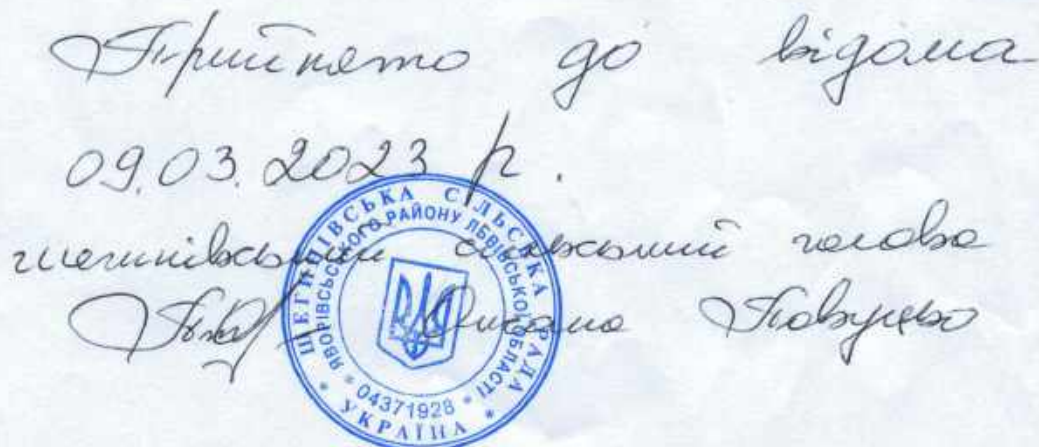 Прийнято до відома
09.03.2023 р.
шегинівський сільський голова
Оксана
ШЕГИНІВСЬКА СІЛЬСЬКА РАДА * УКРАЇНА *
ЯВОРІВСЬКОГО РАЙОНУ ЛЬВІВСЬКОЇ ОБЛАСТІ * 04371928 *